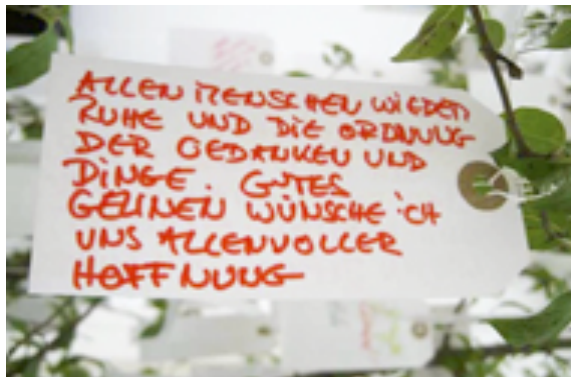 ALLEN MENSCHEN WIEDER
RUHE UND DIE ORDNUNG
DER GEDANKEN UND
DINGE. GUTES
GELINEN WÜNSCHE ICH
UNS ALLENVOLLER
HOFFNUNG